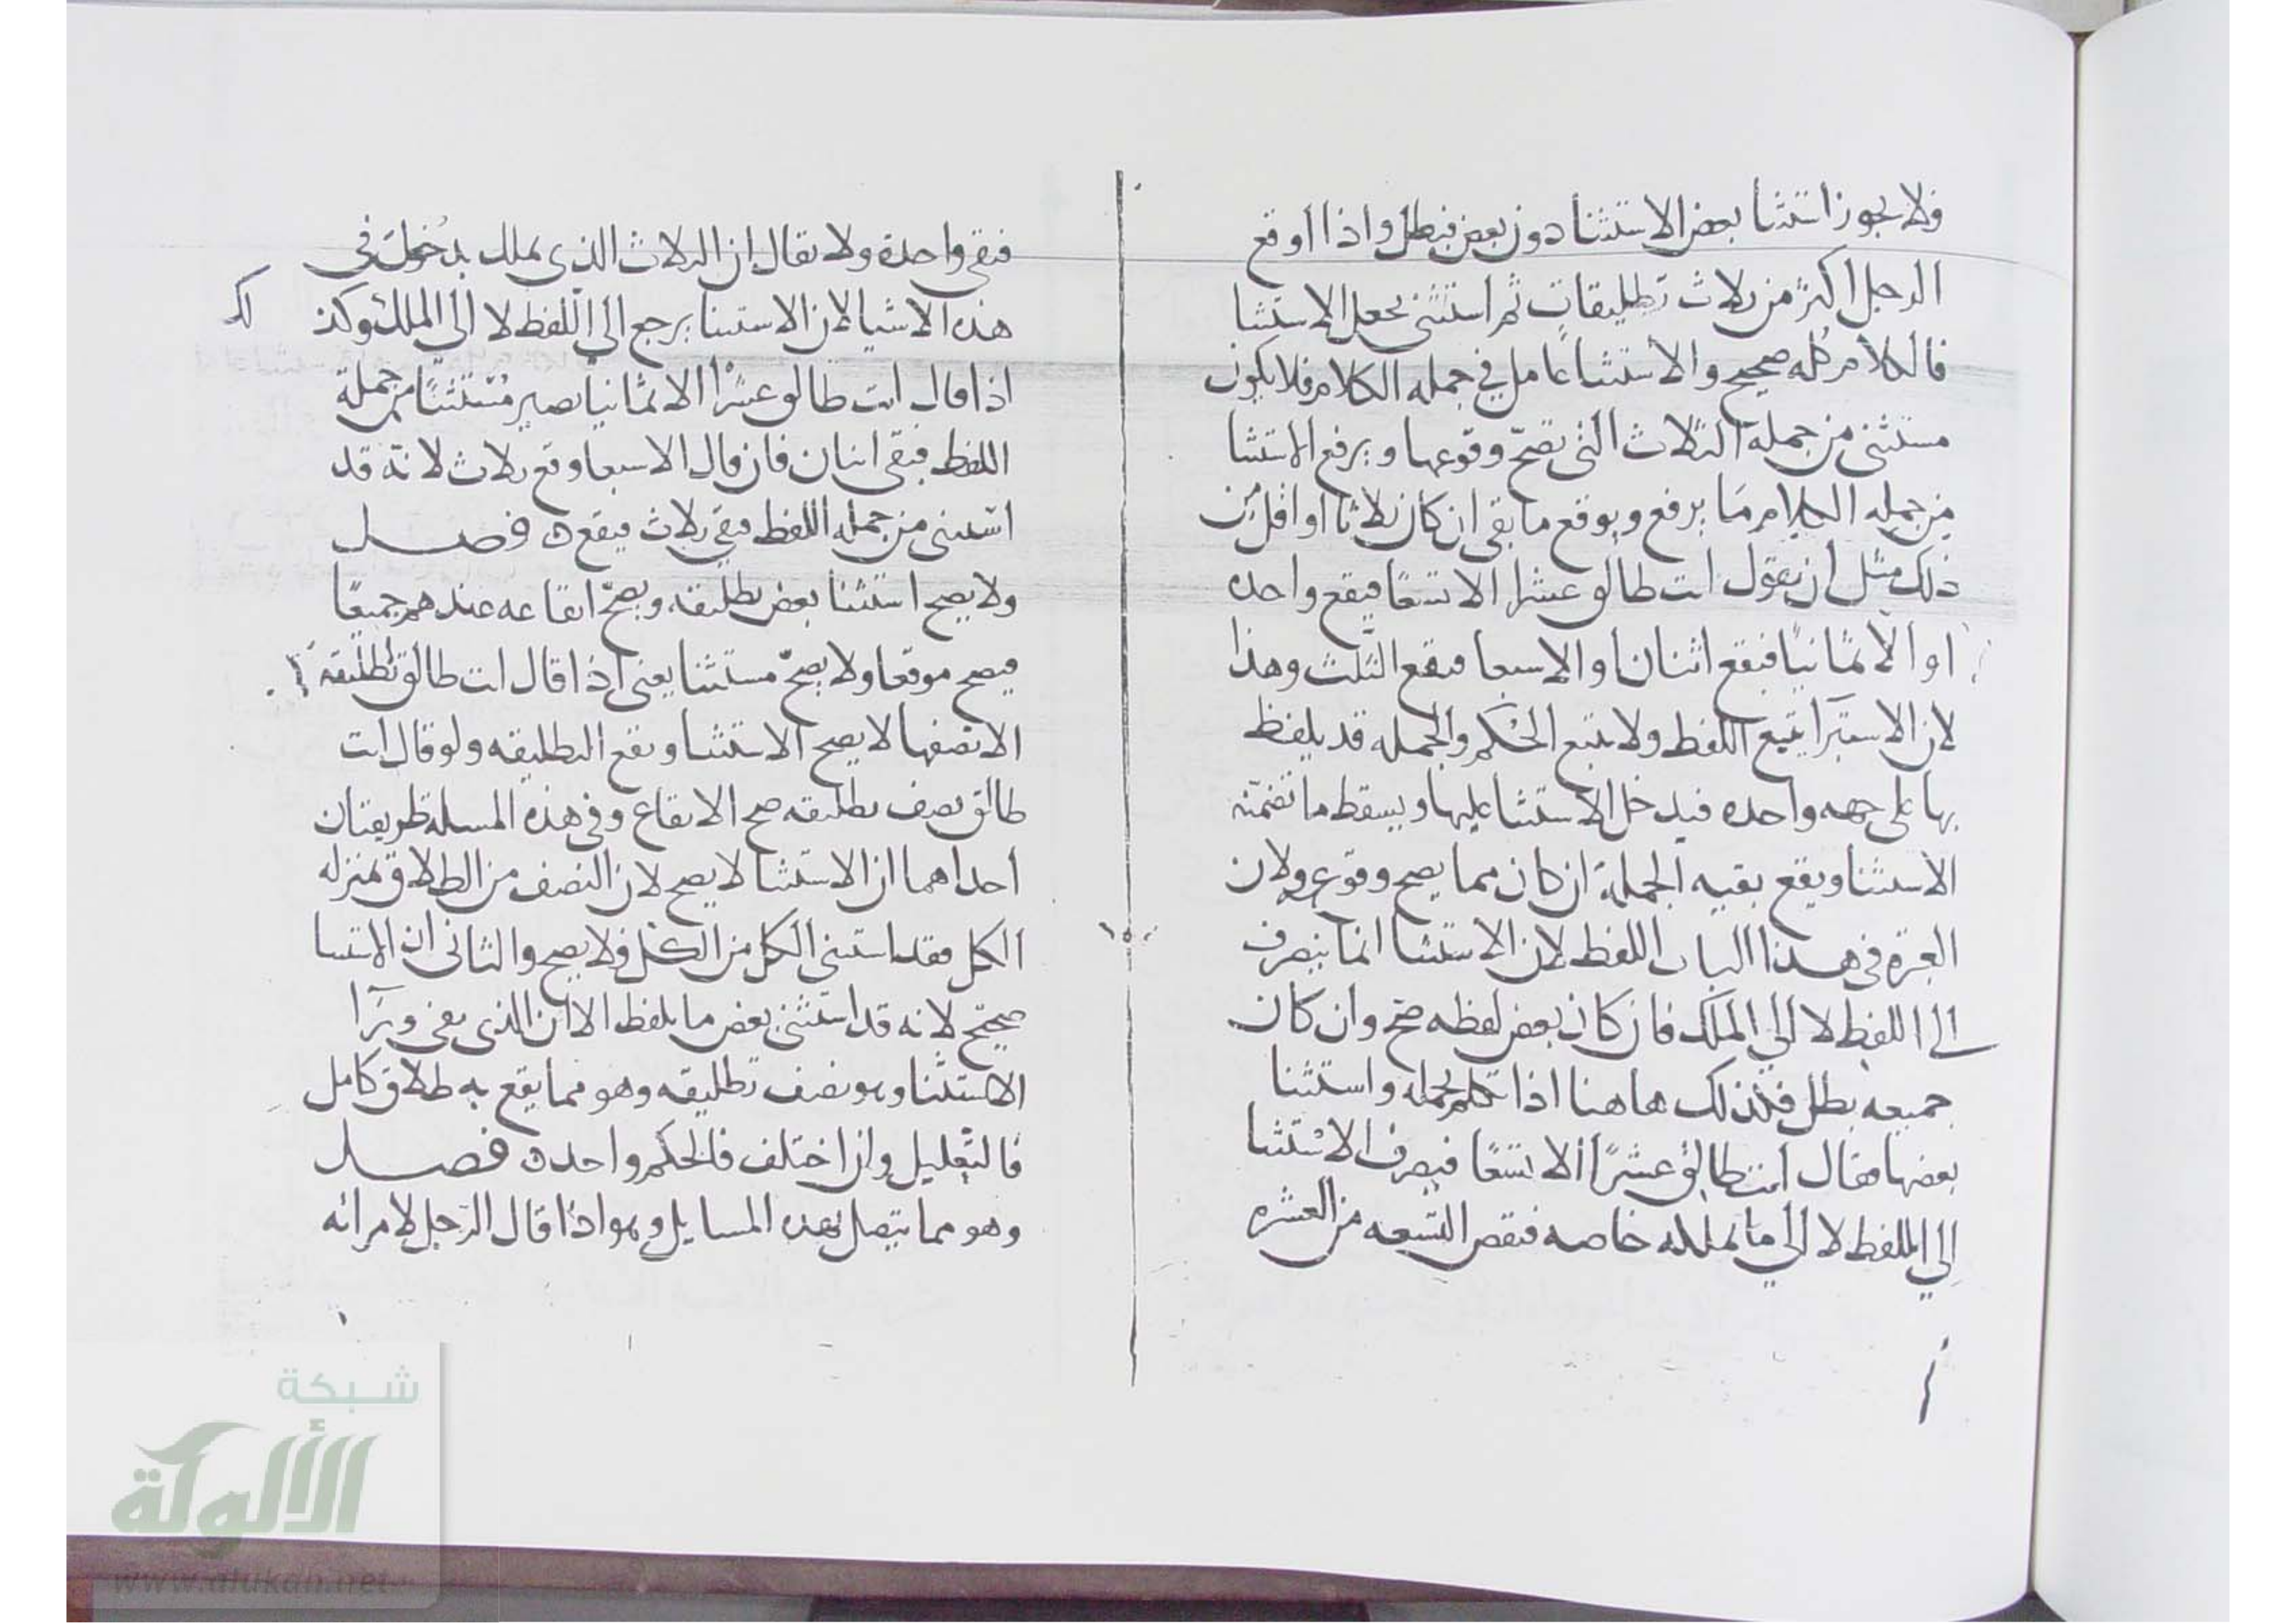 ولا يجوز استثنا بعض الاستثنا دون بعض فبطل واذا اوقع
الرجل اكثر من ثلاث تطليقات ثم استثنى بجعل الاستثنا
فالكلام كله صحيح والاستثنا عامل في جمله الكلام فلا يكون
مستثنى من جملة الثلاث التي يصح وقوعها ويرفع الاستثنا
من جمله الكلام ما يرفع ويوقع ما بقي ان كان ثلاثا او اقل من
ذلك مثل ان يقول انت طالق عشرا الا تسعا فيقع واحده
او الا ثمانيا فيقع اثنان او الا سبعا فيقع الثلث وهذا
لان الاستبرا يتبع اللفظ ولا يتبع الحكم والجمله قد يلفظ
بها على جهه واحده فيدخل الاستثنا عليها ويسقط ما تضمنه
الاستثنا ويقع بقيه الجملة ان كان مما يصح وقوعه ولان
العبرة في هذا الباب اللفظ لان الاستثنا انما ينصرف
الى اللفظ لا الي الملك فان كان بعض لفظه صح وان كان
جميعه بطل فكذلك هاهنا اذا تكلم بجمله واستثنا
بعضها فقال انت طالق عشرا الا تسعا فيصرف الاستثنا
الي اللفظ لا الي ما يملكه خاصه فنقص التسعه من العشره
فبقي واحدة ولا يقال ان الثلاث الذي يملك يدخل في
هذه الاشيا لان الاستثنا يرجع الي اللفظ لا الي الملك وكذ لك
اذا قال انت طالق عشرا الا ثمانيا يصير مستثنا من جملة
اللفظ فبقى اثنان فان قال الا سبعا وقع ثلاث لانه قد
استثنى من جمله اللفظ فبقي ثلاث فيقع ه فصل
ولا يصح استثنا بعض تطليقه ويصح ايقاعه عندهم جميعا
فيصح موقعا ولا يصح مستثنا يعني اذا قال انت طالق تطليقة
الا نصفها لا يصح الاستثنا ويقع التطليقه ولو قال انت
طالق نصف تطليقه صح الايقاع وفي هذه المسلة طريقتان
احداهما ان الاستثنا لا يصح لان النصف من الطلاق بمنزله
الكل فقد استثنى الكل من الكل فلا يصح والثاني ان الاستثنا
صحيح لانه قد استثنى بعض ما يلفظ الا ان الذي بقي
الاستثنا وهو نصف تطليقه وهو مما يقع به طلاق كامل
فالتعليل وان اختلف فالحكم واحد ه فصل
وهو مما يتصل بهذه المسايل وهو اذا قال الرجل لامراته
شبكة
الألوكة
www.alukah.net